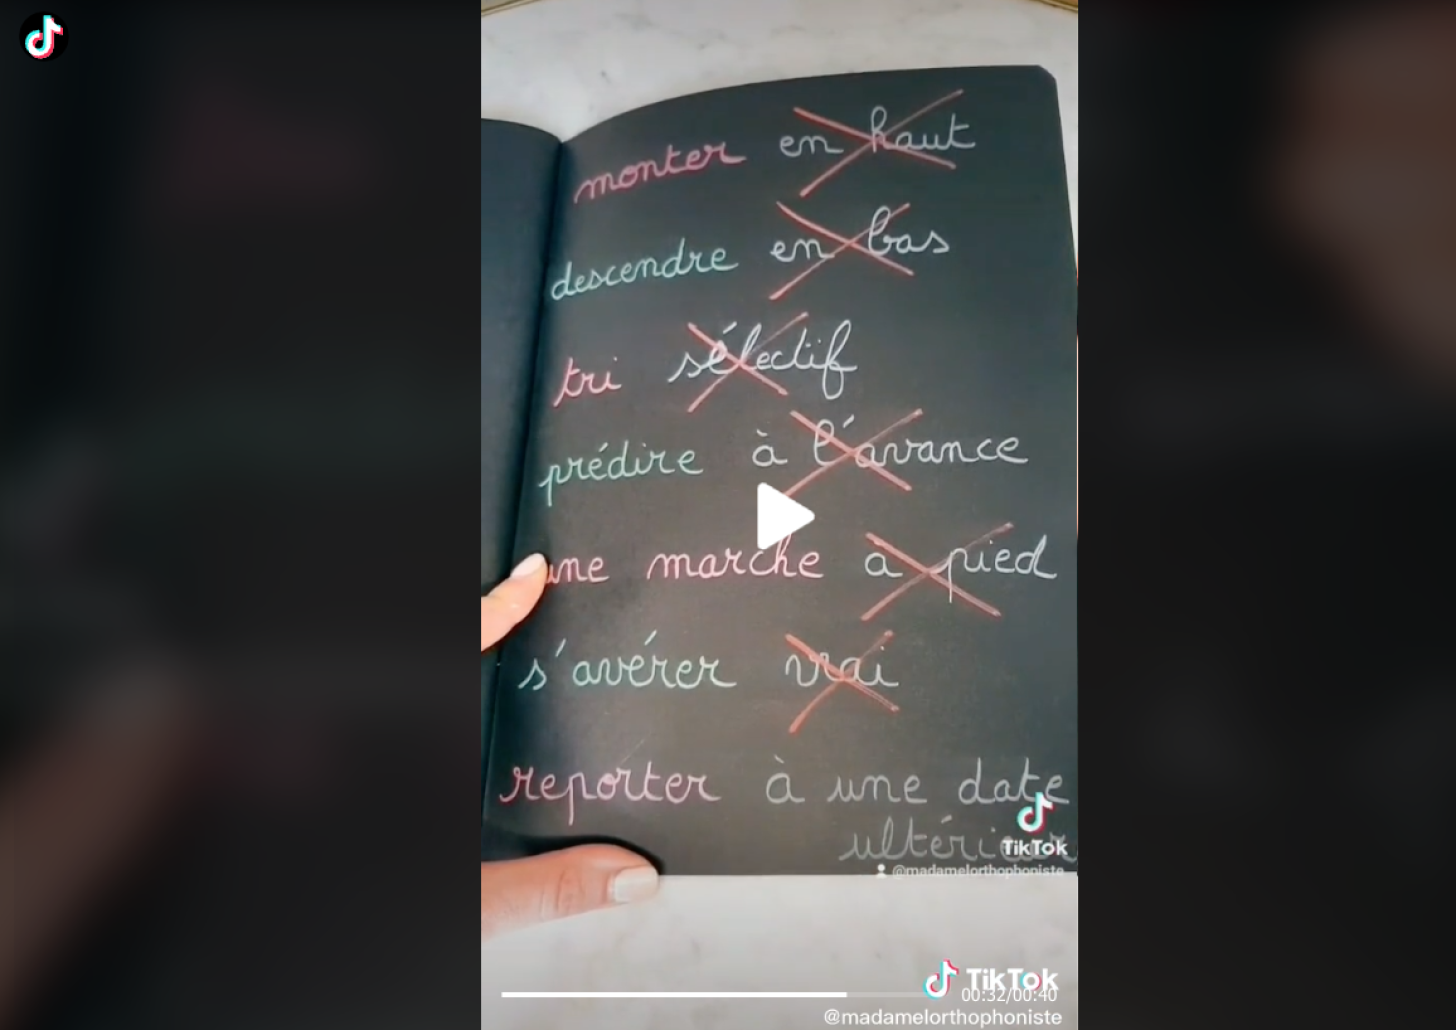 monter en haut
descendre en bas
tri sélectif
prédire à l'avance
une marche à pied
s'avérer vrai
reporter à une date
TikTok
@madamelorthophoniste
TikTok
00:32/00:40
@madamelorthophoniste